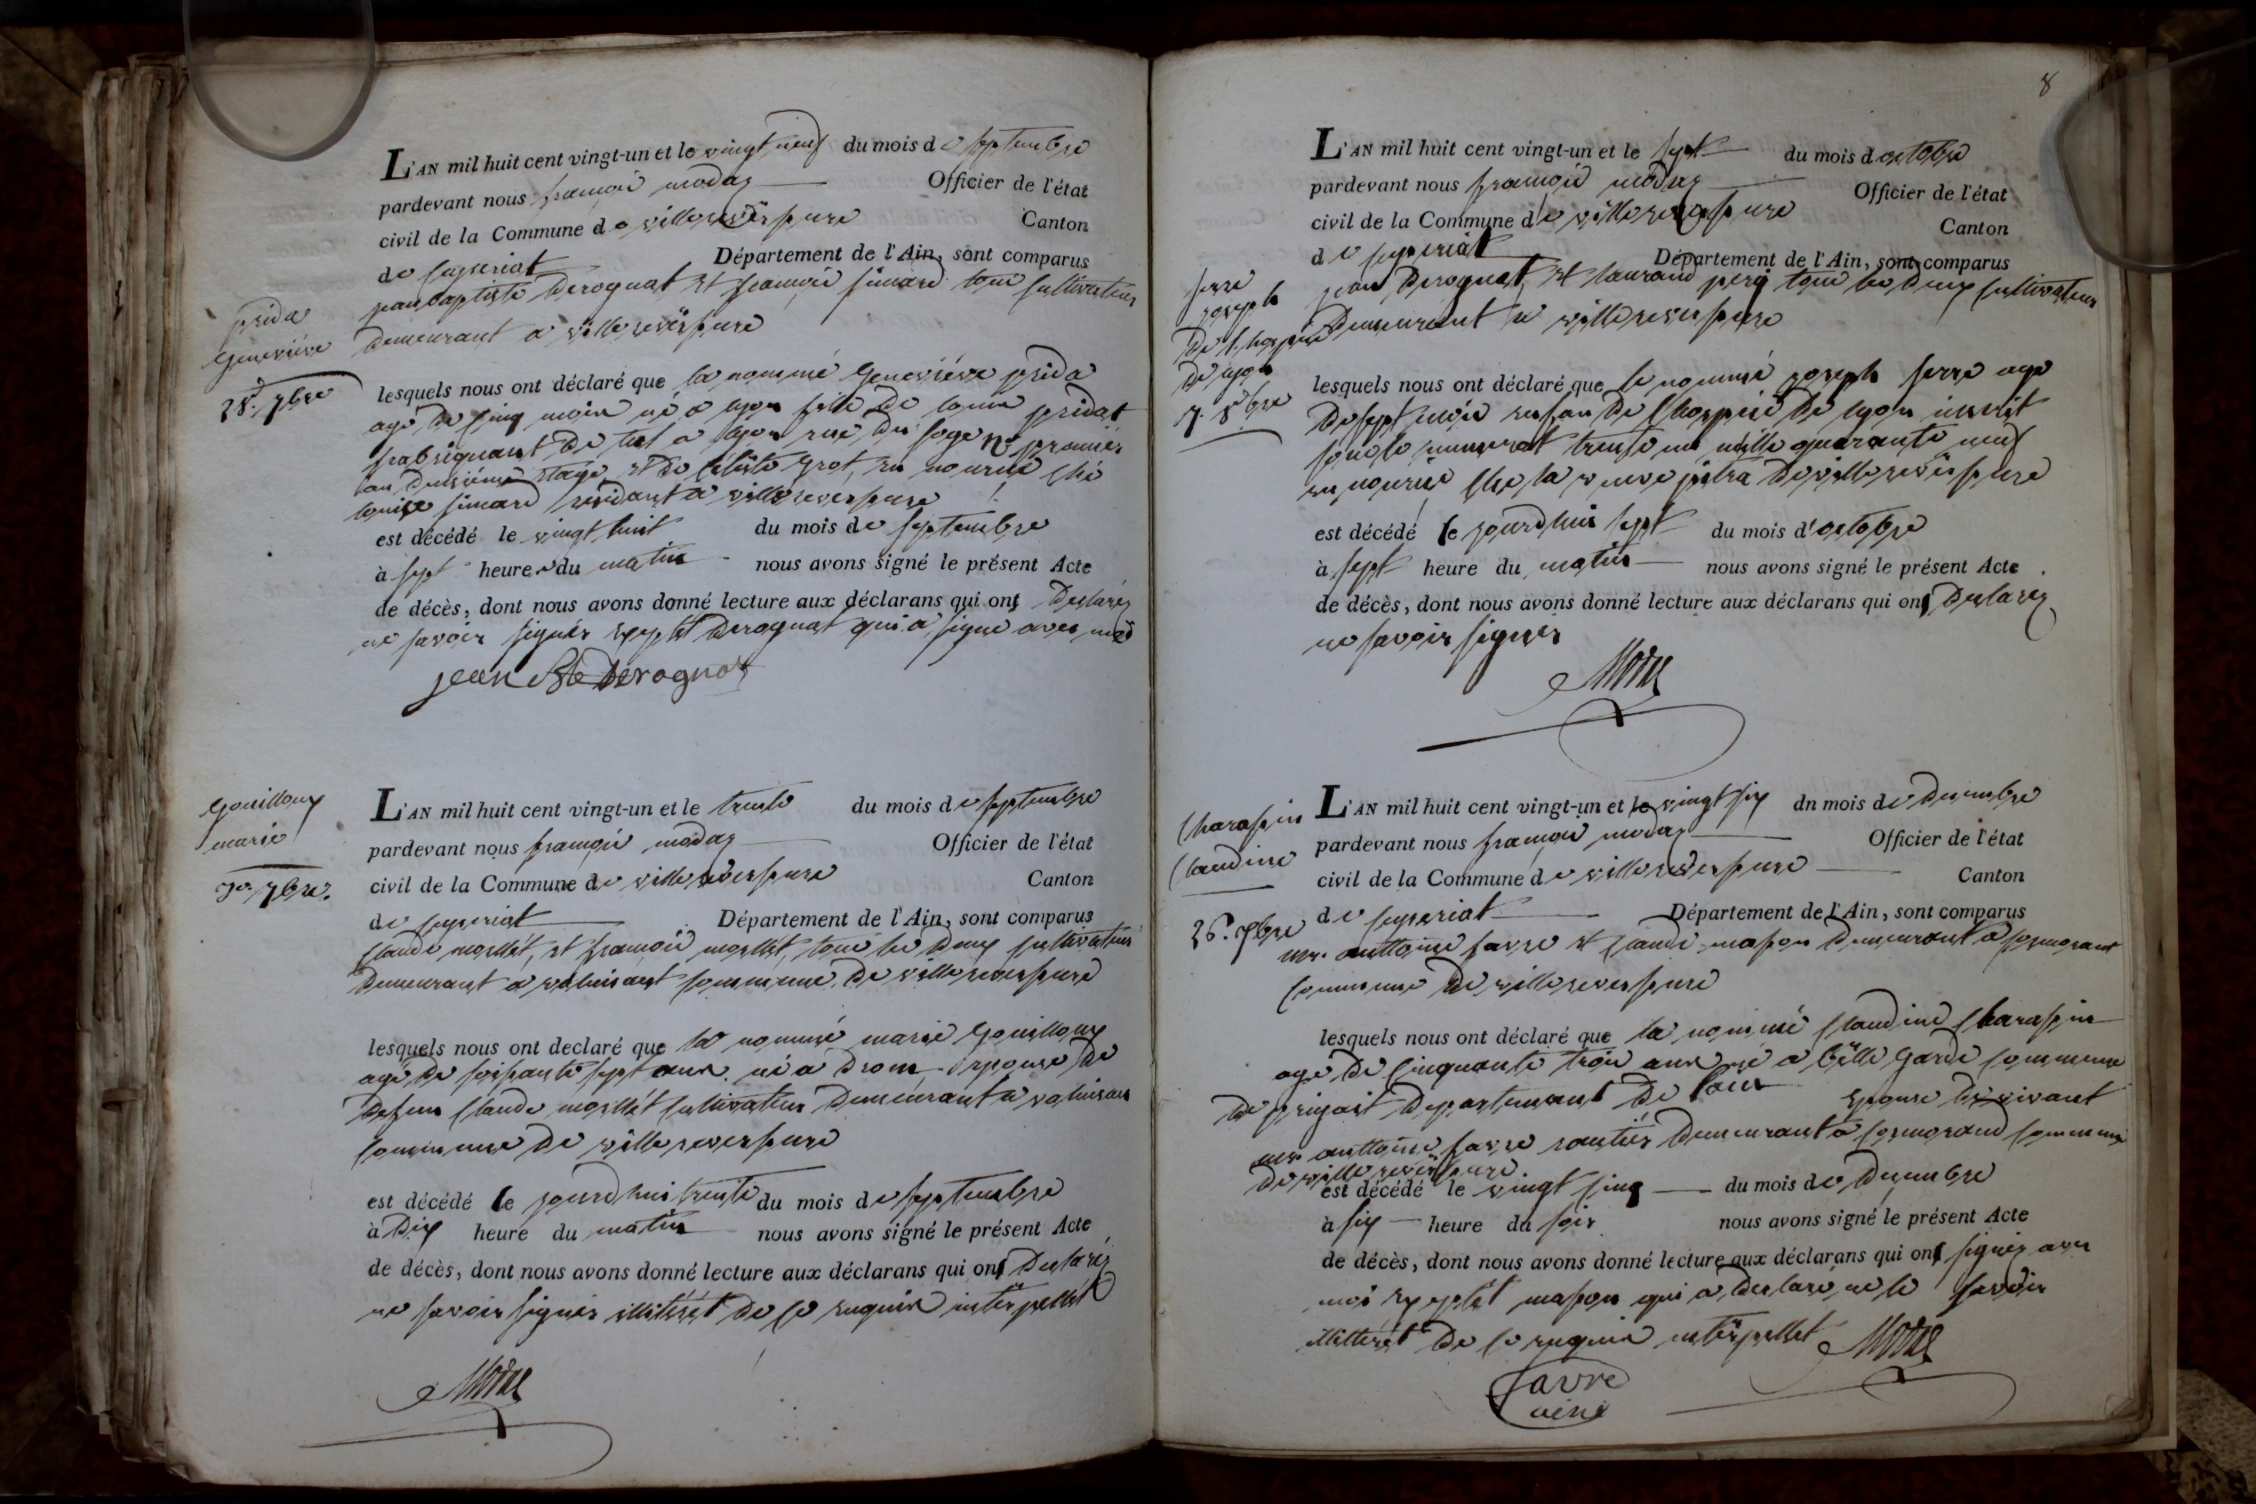 prida
Geneviève
28. 7bre
L'AN mil huit cent vingt-un et le vingt neuf du mois de septembre
pardevant nous françois modas Officier de l'état
civil de la Commune de villereversure Canton
de ceyseriat Département de l'Ain, sont comparus
jean baptiste Derognat et françois simard tous cultivateurs
Demeurant a villereversure
lesquels nous ont déclaré que la nommé Geneviève prida
agé de cinq mois né a lyon fille de louis pridat
fabriquant de tul a lyon rue du soge no premier
au deusième étage et de grot, en nourice ché
louise simard residant a villereversure
est décédé le vingt huit du mois de septembre
à sept heure du matin nous avons signé le présent Acte
de décès, dont nous avons donné lecture aux déclarans qui ont Declarés
ne savoir signer exepté Derognat qui a signé avec moi
jean Bte Derognat
Gouilloux
marie
30. 7bre.
L'AN mil huit cent vingt-un et le trente du mois de septembre
pardevant nous françois modas Officier de l'état
civil de la Commune de villereversure Canton
de ceyseriat Département de l'Ain, sont comparus
claude morllet, et françois morllet, tous les deux cultivateurs
Demeurant a commune de villereversure
lesquels nous ont declaré que la nommé marie Gouilloux
agé de soisante sept ans né a drom epouse de
defun claude morllet cultivateur Demeurant a
commune de villereversure
est décédé le jourdhui trente du mois de septembre
à dix heure du matin nous avons signé le présent Acte
de décès, dont nous avons donné lecture aux déclarans qui ont Declarés
ne savoir signer illitérét de ce enquis interpellét
Modas
8
serre
joseph
de l'hospice
de lyon
7. 8bre
L'AN mil huit cent vingt-un et le sept du mois d'octobre
pardevant nous françois modas Officier de l'état
civil de la Commune de villereversure Canton
de ceyseriat Département de l'Ain, sont comparus
jean Derognat, et laurand tous les deux cultivateurs
Demeurant a villereversure
lesquels nous ont déclaré que le nommé joseph serre agé
de sept mois enfan de l'hospice de lyon inscrit
sous le numerot trente un mille quarante neuf
en nourice ché la veuve de villereversure
est décédé le jourdhui sept du mois d'octobre
à sept heure du matin nous avons signé le présent Acte
de décès, dont nous avons donné lecture aux déclarans qui ont Declarés
ne savoir signer
Modas
Charassin
Claudine
26.
L'AN mil huit cent vingt-un et le vingt six dn mois de decembre
pardevant nous françois modas Officier de l'état
civil de la Commune de villereversure Canton
de ceyseriat Département de l'Ain, sont comparus
mr. anttoine favre et claude masson Demeurant a cormorant
commune de villereversure
lesquels nous ont déclaré que la nommé claudine charassin
agé de cinquante trois ans né a belle garde commune
de Departement de l'ain epouse vivant
mr anttoine favre rantier Demeurant a cormorand commune
de villereversure
est décédé le vingt cinq du mois de decembre
à six heure du soir nous avons signé le présent Acte
de décès, dont nous avons donné lecture aux déclarans qui ont signés avec
moi exeptét masson qui a declaré ne le savoir
illitterét de ce enquis interpellet Modas
favre